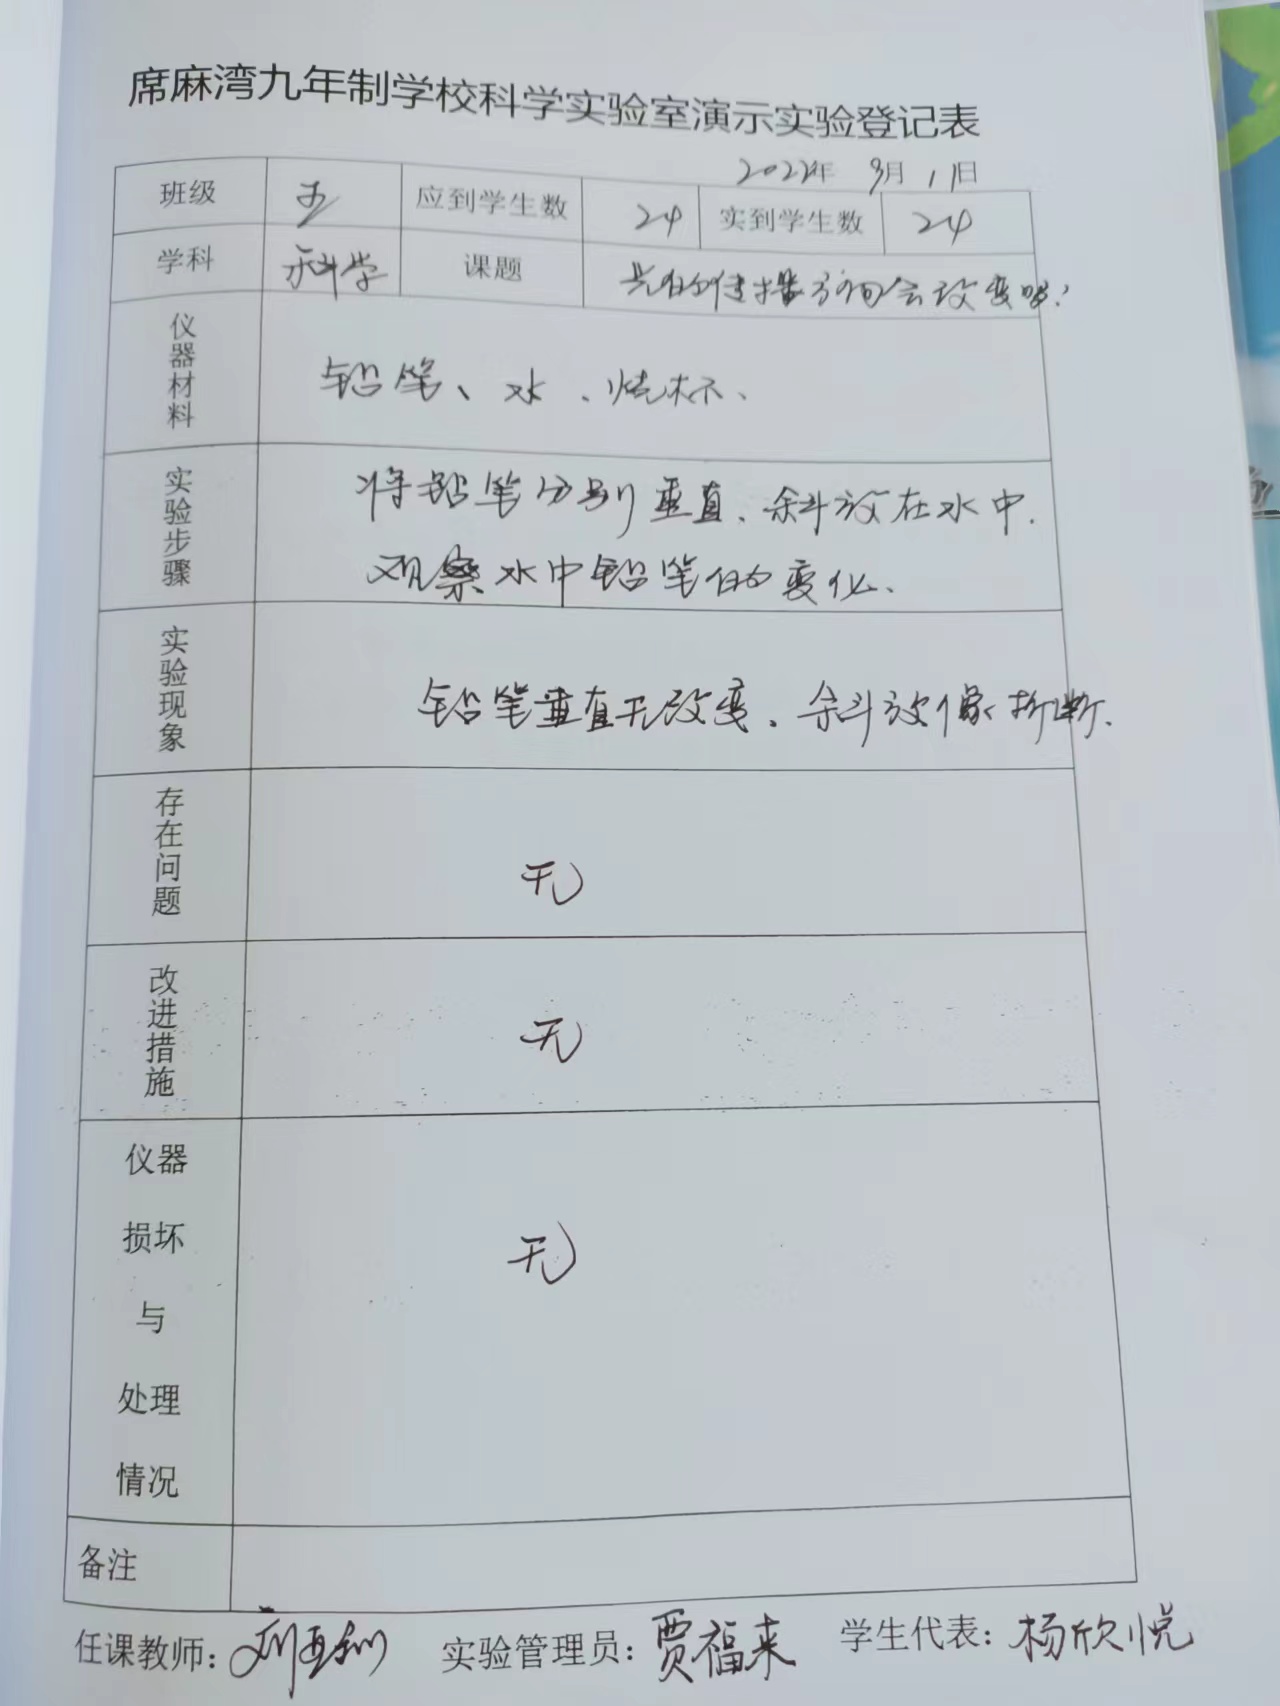 席麻湾九年制学校科学实验室演示实验登记表
2022年 9月 11日
班级 五 应到学生数 24 实到学生数 24
学科 科学 课题 光的传播方向会改变吗?
仪器材料 铅笔、水、烧杯、
实验步骤 将铅笔分别垂直、斜放在水中.
观察水中铅笔的变化.
实验现象 铅笔垂直无改变、斜放像折断.
存在问题 无
改进措施 无
仪器
损坏 无
与
处理
情况
备注
任课教师: 实验管理员: 贾福来 学生代表: 杨欣悦